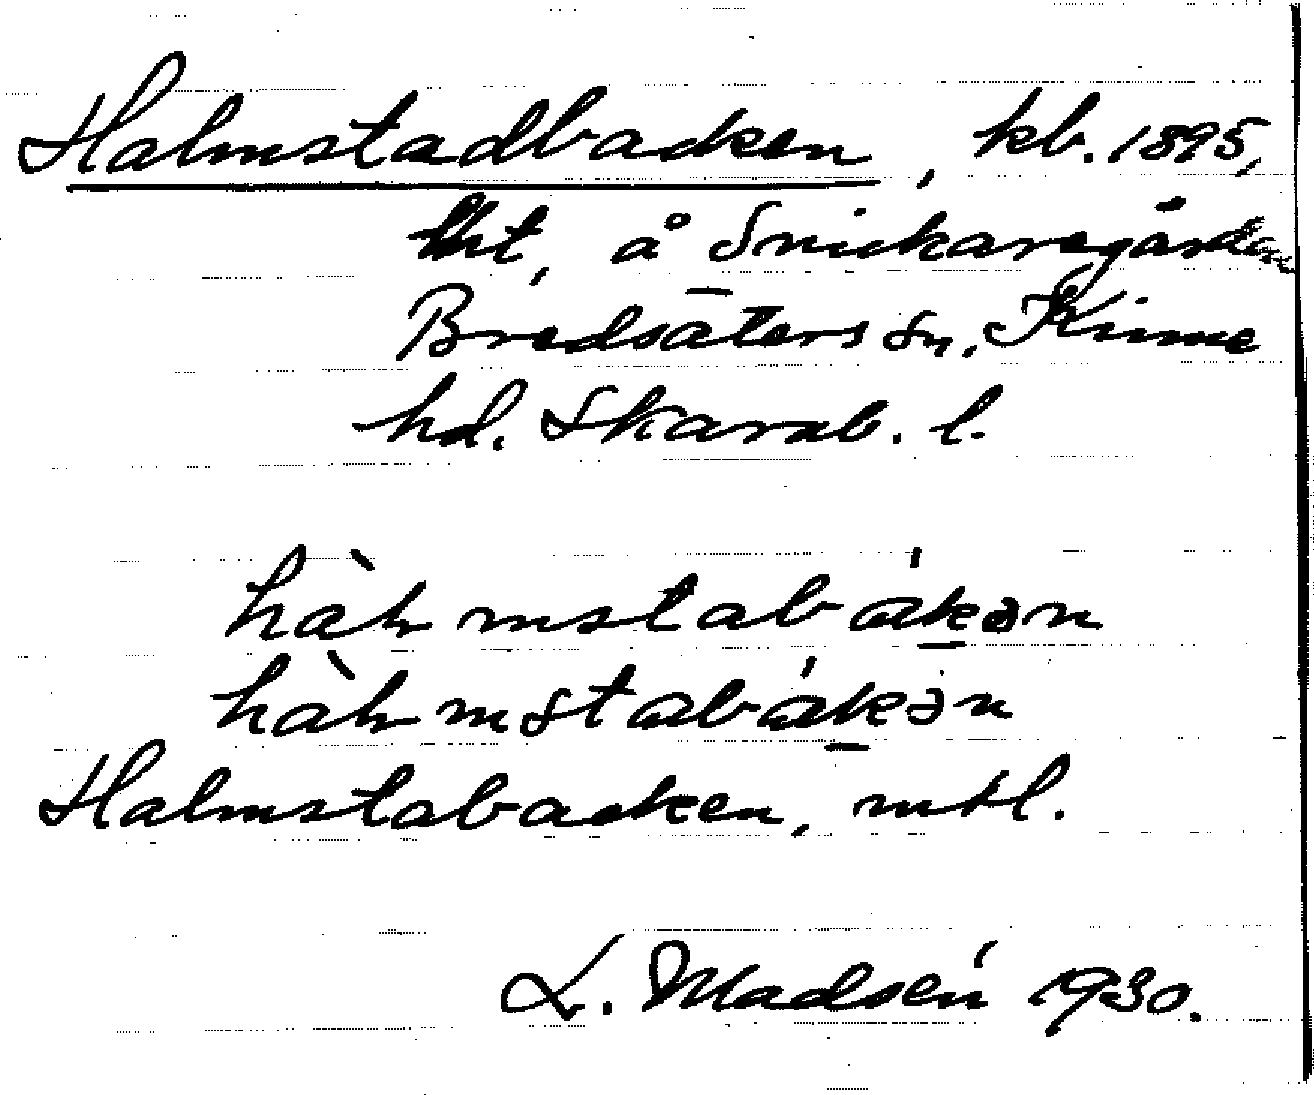 Halmstadbacken, kb. 1895,
lht, å Snickaregården
Bredsäters sn. Kinne
hd. Skarab. l.
hàƚmstabákən
hàƚmstabákən
Halmstabacken, mtl.
L. Madsén 1930.